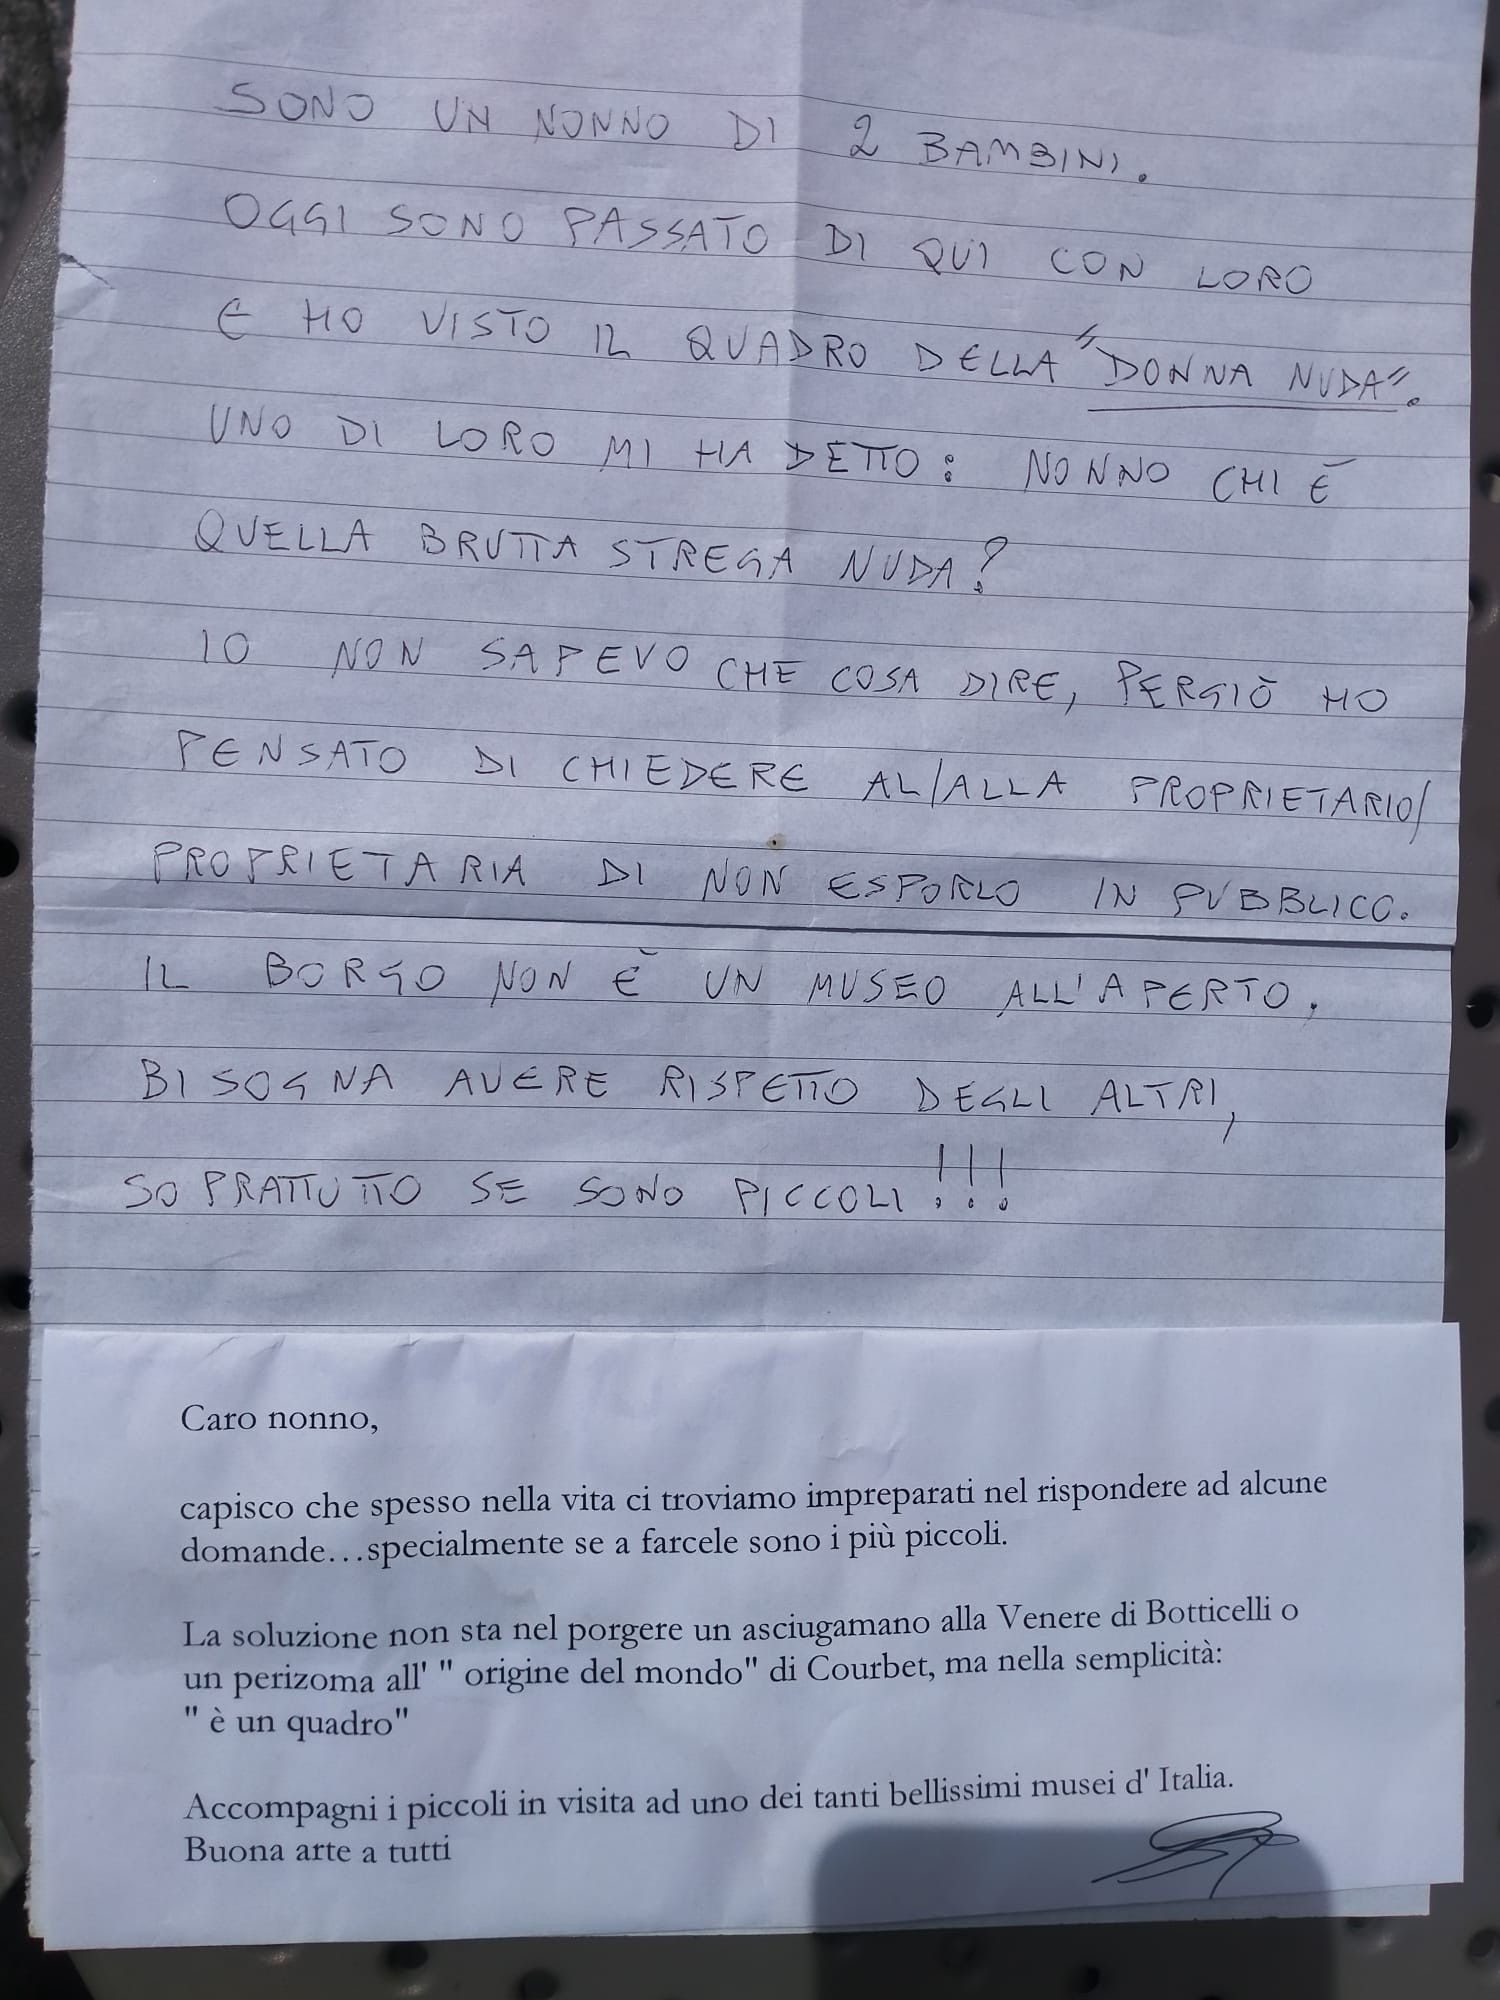 SONO UN NONNO DI 2 BAMBINI.
OGGI SONO PASSATO DI QUI CON LORO
E HO VISTO IL QUADRO DELLA "DONNA NUDA".
UNO DI LORO MI HA DETTO: NONNO CHI È
QUELLA BRUTTA STREGA NUDA?
IO NON SAPEVO CHE COSA DIRE, PERGIÒ HO
PENSATO DI CHIEDERE AL/ALLA PROPRIETARIO/
PROPRIETARIA DI NON ESPORLO IN PUBBLICO.
IL BORGO NON È UN MUSEO ALL'APERTO.
BISOGNA AVERE RISPETTO DEGLI ALTRI,
SOPRATTUTTO SE SONO PICCOLI!!!
Caro nonno,
capisco che spesso nella vita ci troviamo impreparati nel rispondere ad alcune
domande…specialmente se a farcele sono i più piccoli.
La soluzione non sta nel porgere un asciugamano alla Venere di Botticelli o
un perizoma all' " origine del mondo" di Courbet, ma nella semplicità:
" è un quadro"
Accompagni i piccoli in visita ad uno dei tanti bellissimi musei d' Italia.
Buona arte a tutti